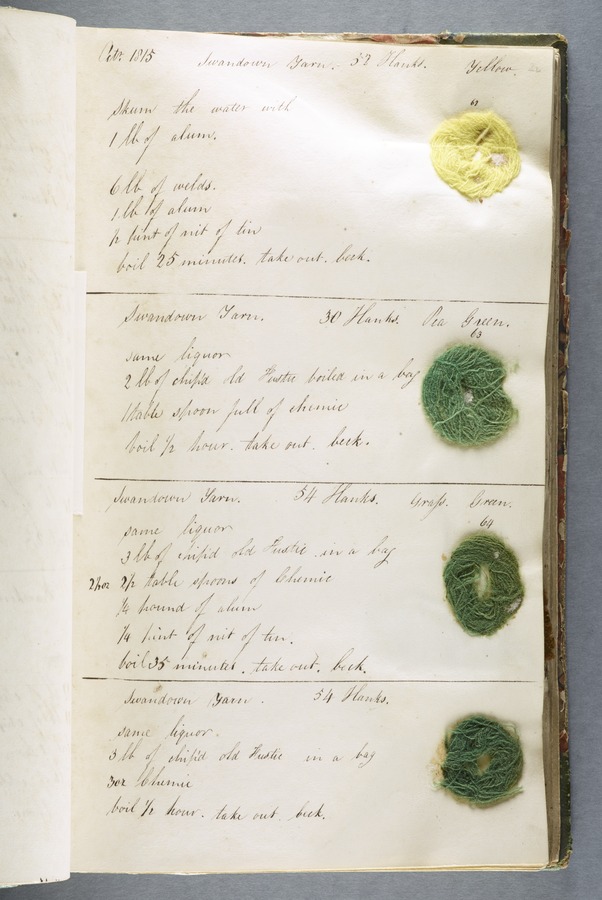 Octr. 1815 Swandown Yarn. 52 Hanks. Yellow.
62
Skum the water with
1 lb of alum.
6 lb of welds.
1 lb of alum
½ pint of nit of tin
boil 25 minutes. take out. beck.
Swandown Yarn. 30 Hanks. Pea Green.
63
same liquor
2 lb of chip'd old Fustic boiled in a bag
1 table spoon full of chemic
boil ½ hour. take out. beck.
Swandown Yarn. 54 Hanks. Grass. Green.
64
same liquor
3 lb of chip'd old Fustic in a bag
2½oz 2½ table spoons of Chemic
¼ pound of alum
¼ pint of nit of tin.
boil 35 minutes. take out. beck.
Swandown Yarn. 54 Hanks.
same liquor.
3 lb of chip'd old Fustic in a bag
3oz Chemic
boil ½ hour. take out. beck.